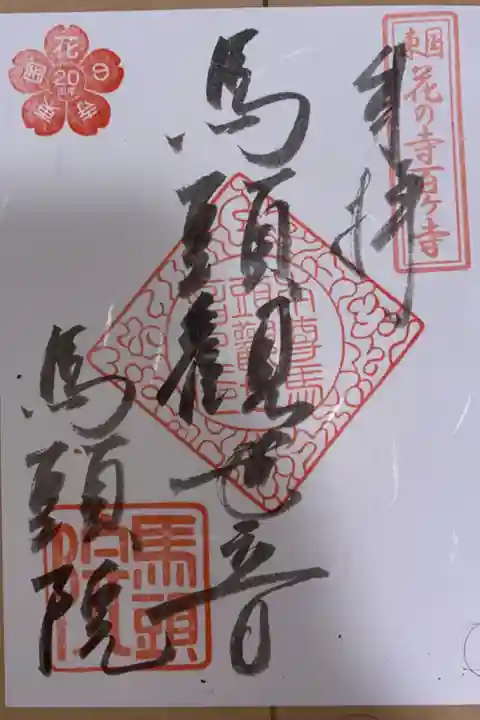 東国花の寺百ケ寺
奉拝
馬頭觀世音
馬頭院
馬頭院
花の寺
20
周年